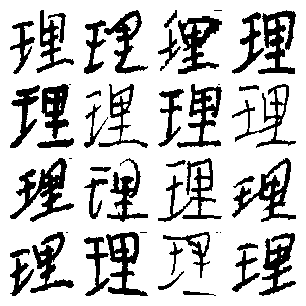 理理理理
理理理理
理理理理
理理理理